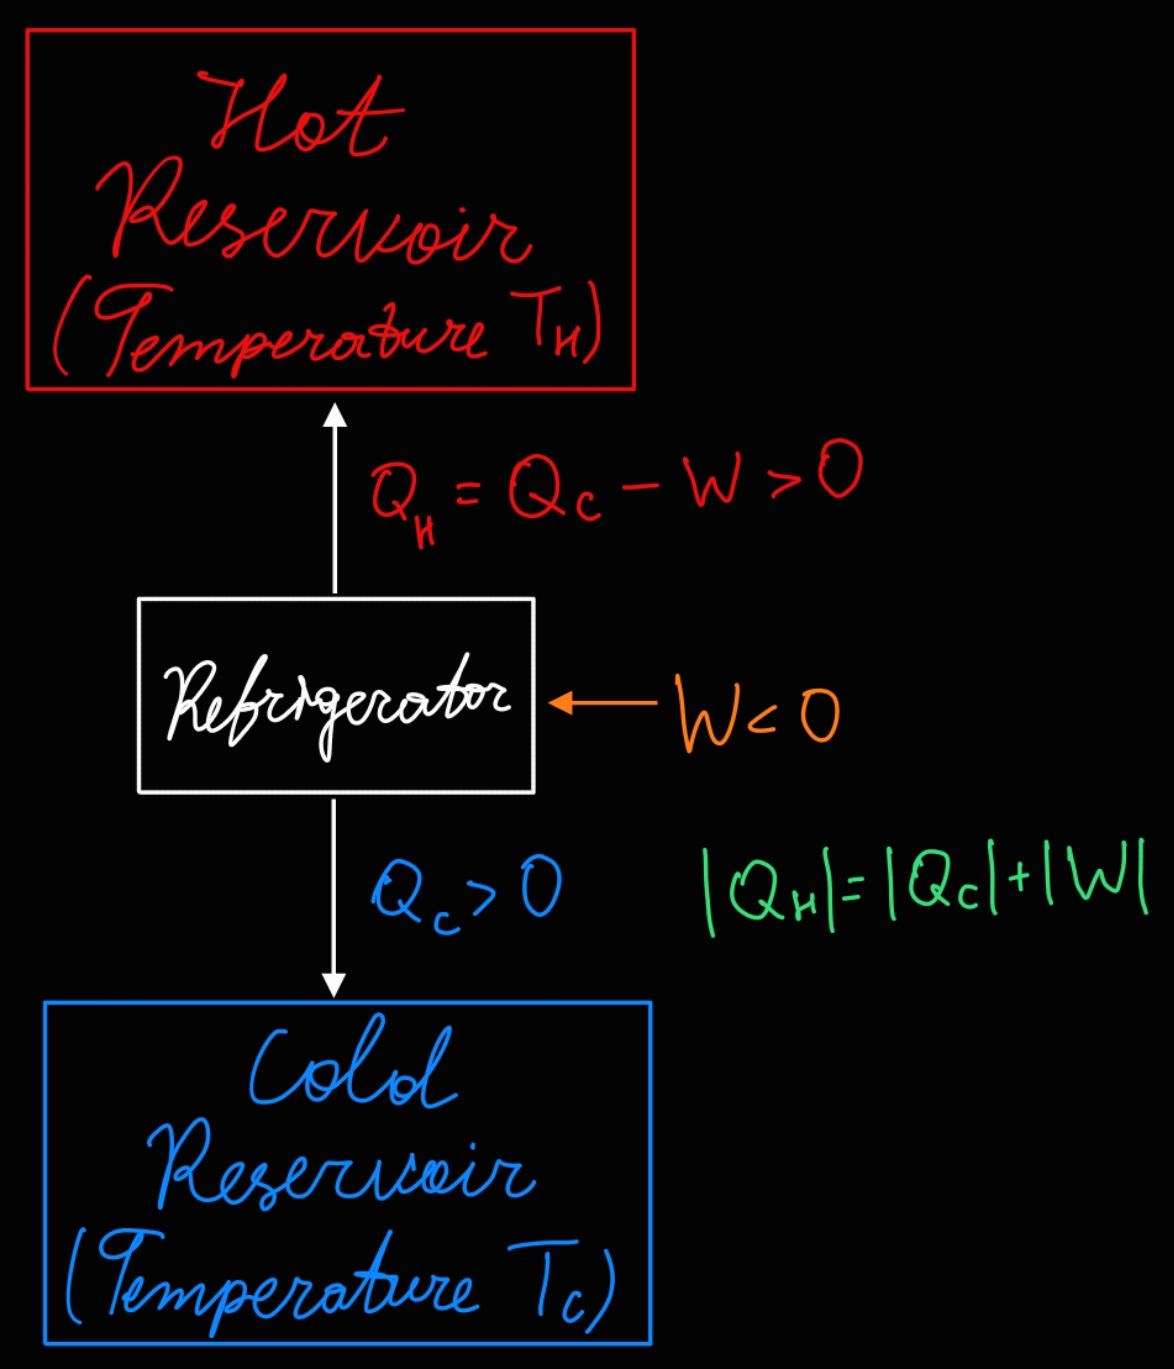 Hot
Reservoir
(Temperature T_H)
Q_H = Q_C - W > 0
Refrigerator
W < 0
Q_C > 0
|Q_H| = |Q_C| + |W|
Cold
Reservoir
(Temperature T_C)